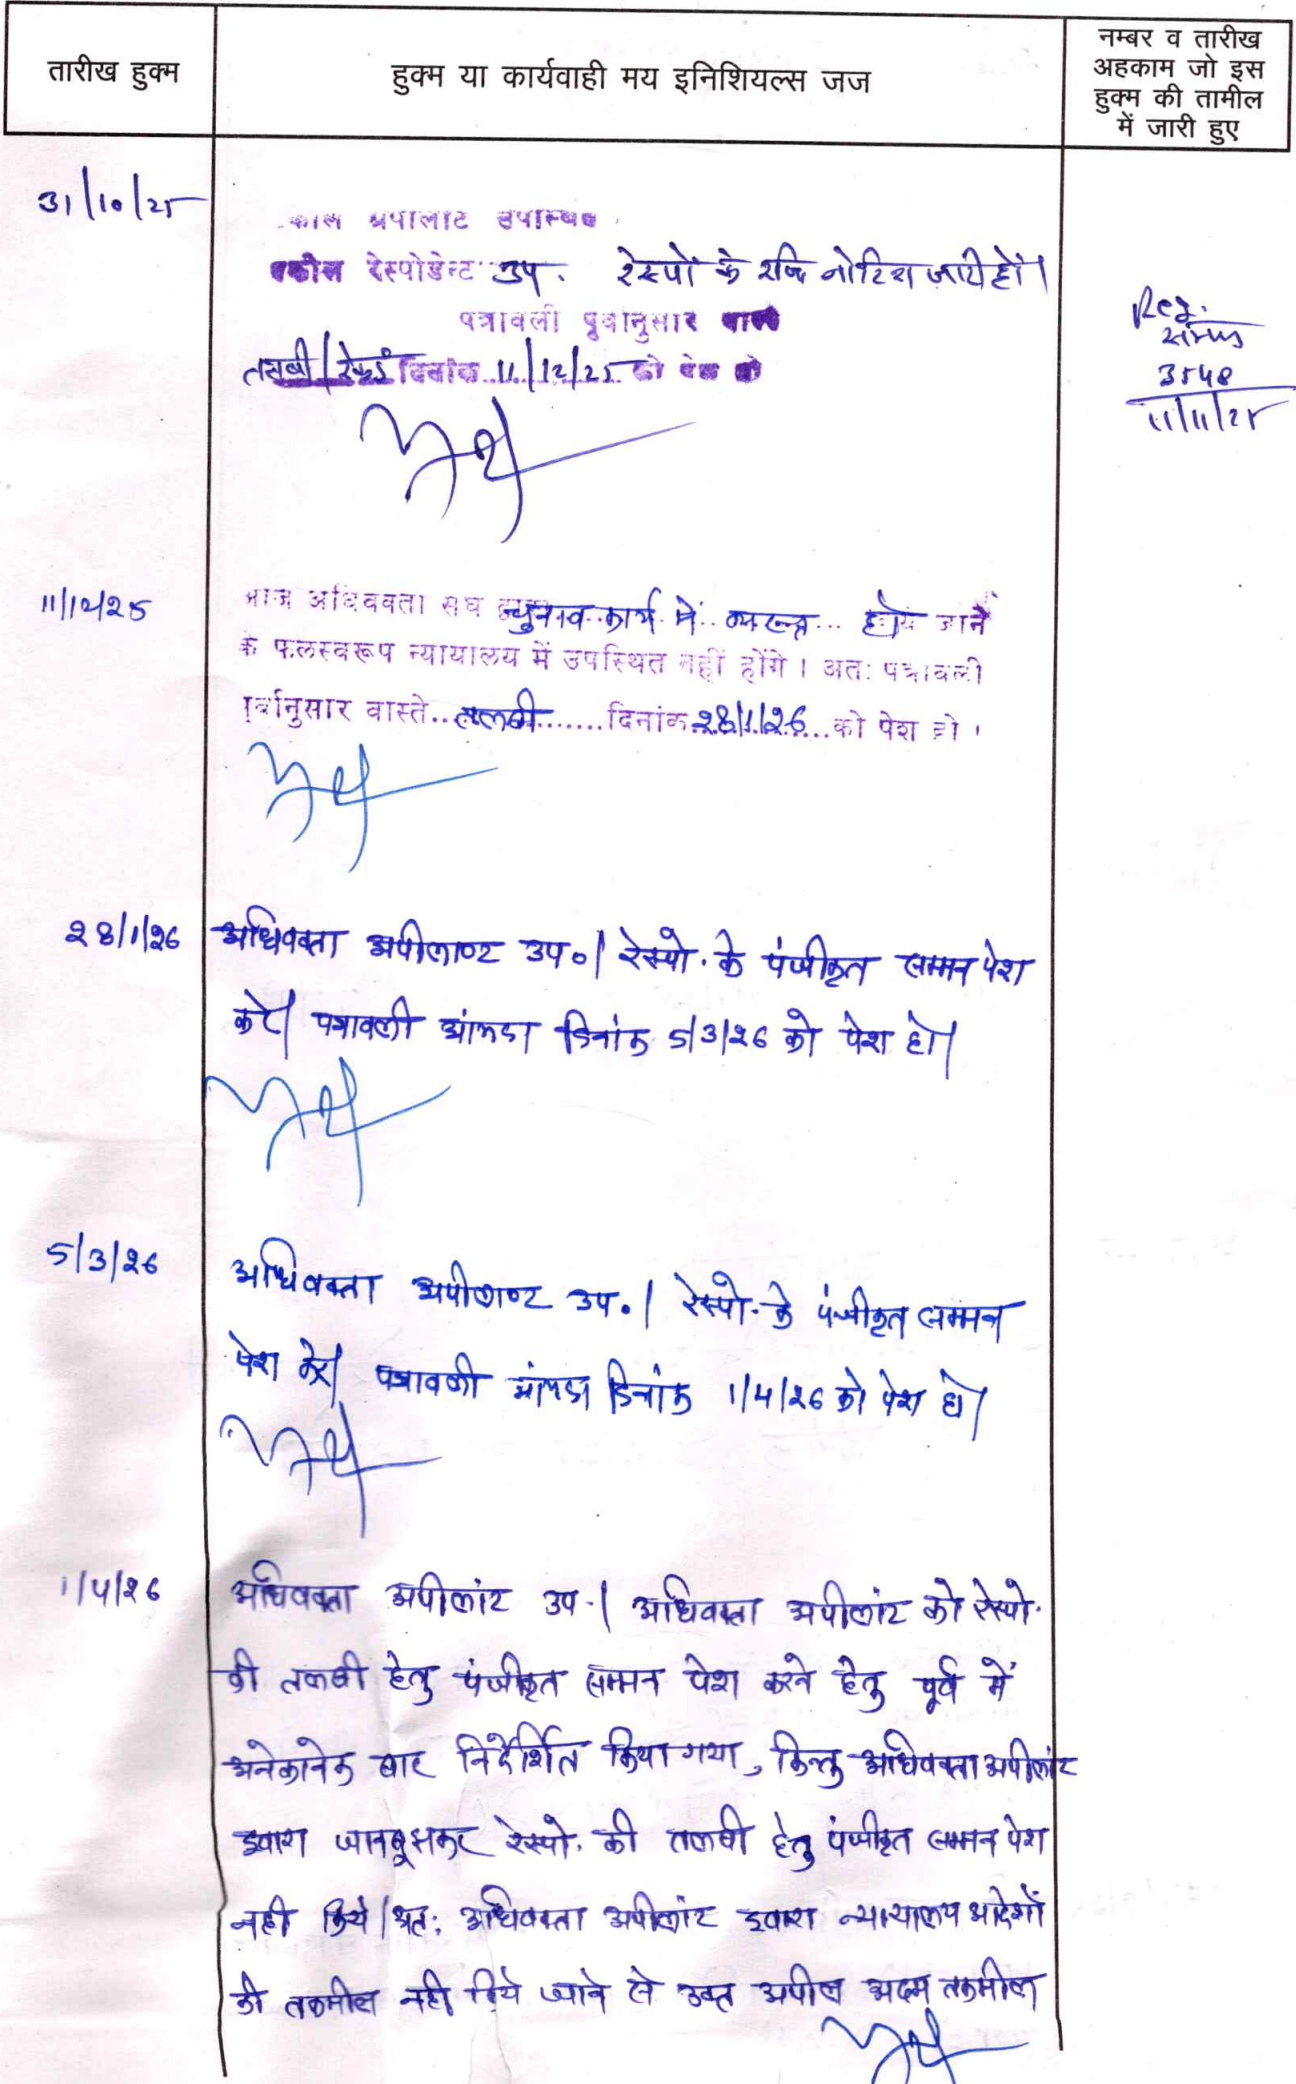 तारीख हुक्म
हुक्म या कार्यवाही मय इनिशियल्स जज
नम्बर व तारीख
अहकाम जो इस
हुक्म की तामील
में जारी हुए
31/10/25
रेस्पोडेन्ट उप. रेस्पों के रजि नोटिस जारी हों।
पत्रावली पूर्वानुसार वास्ते
तलबी/रेकर्ड दिनांक 11/12/25 को पेश हो
Reg.
3548
11/11/25
11/12/25
आज अधिवक्ता संघ द्वारा चुनाव कार्य में व्यस्त होने जाने
के फलस्वरूप न्यायालय में उपस्थित नहीं होंगे। अतः पत्रावली
पूर्वानुसार वास्ते..तलबी.......दिनांक 28/1/26...को पेश हो।
28/1/26
अधिवक्ता अपीलाण्ट उप०। रेस्पो. के पंजीकृत सम्मन पेश
करें। पत्रावली आंकडा दिनांक 5/3/26 को पेश हो।
5/3/26
अधिवक्ता अपीलाण्ट उप०। रेस्पो. के पंजीकृत सम्मन
पेश करें। पत्रावली आंकडा दिनांक 1/4/26 को पेश हो।
1/4/26
अधिवक्ता अपीलांट उप.। अधिवक्ता अपीलांट को रेस्पो.
की तलबी हेतु पंजीकृत सम्मन पेश करने हेतु पूर्व में
अनेकानेक बार निर्देर्शित किया गया, किन्तु अधिवक्ता अपीलांट
द्वारा जानबूझकर रेस्पो. की तलबी हेतु पंजीकृत सम्मन पेश
नही किये। अत: अधिवक्ता अपीलांट द्वारा न्यायालय आदेशों
की तकमील नही किये जाने से उक्त अपील अदम तकमील